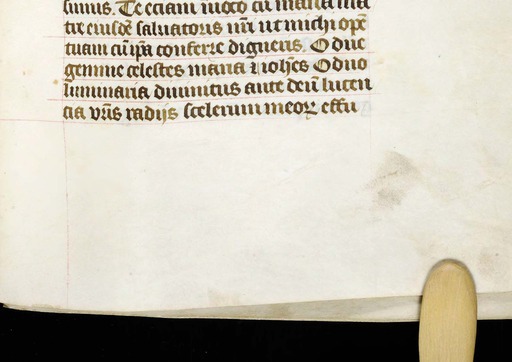 simus. Te eciam inuoco cū maria ma
tre eiusdē saluatoris nr̄i ut michi opē
tuam cū ip̄a conferre digneris. O due
gemme celestes maria ⁊ ioh̄es O duo
luminaria diuinitus ante deū lucen
cia vr̄is radijs scelerum meoꝝ effu